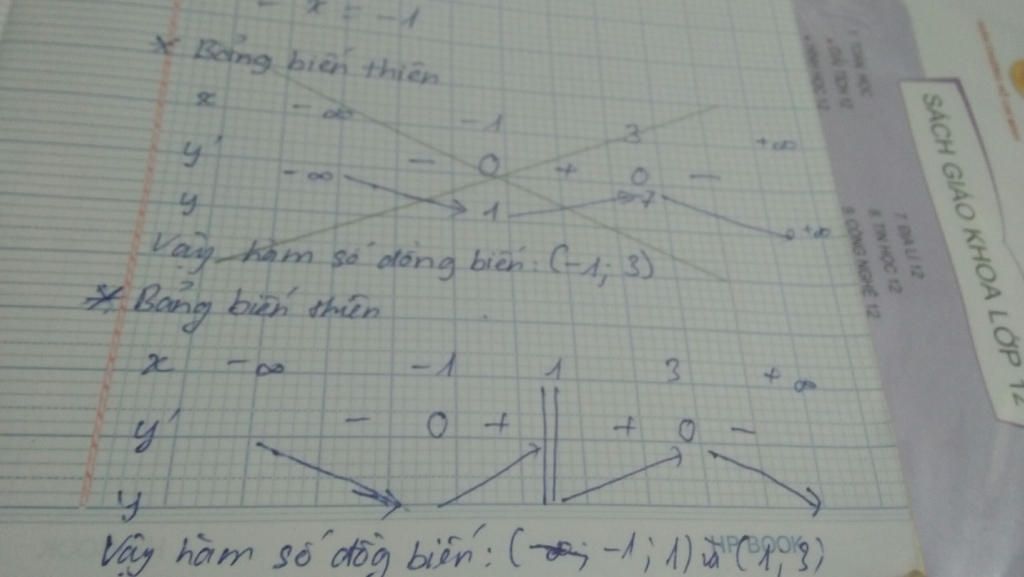 - x = -1
* Bảng biến thiên
x -∞ -1 3 +∞
y' - 0 + 0 -
y -∞ 1 7 +∞
Vậy hàm số đồng biến: (-1; 3)
* Bảng biến thiên
x -∞ -1 1 3 +∞
y' - 0 + || + 0 -
y
Vậy hàm số đồg biến: (-∞; -1; 1) và (1, 3)
HP BOOK
SÁCH GIÁO KHOA LỚP 12
1. TOÁN HỌC
• GIẢI TÍCH 12
• HÌNH HỌC 12
7. ĐỊA LÍ 12
8. TIN HỌC 12
9. CÔNG NGHỆ 12